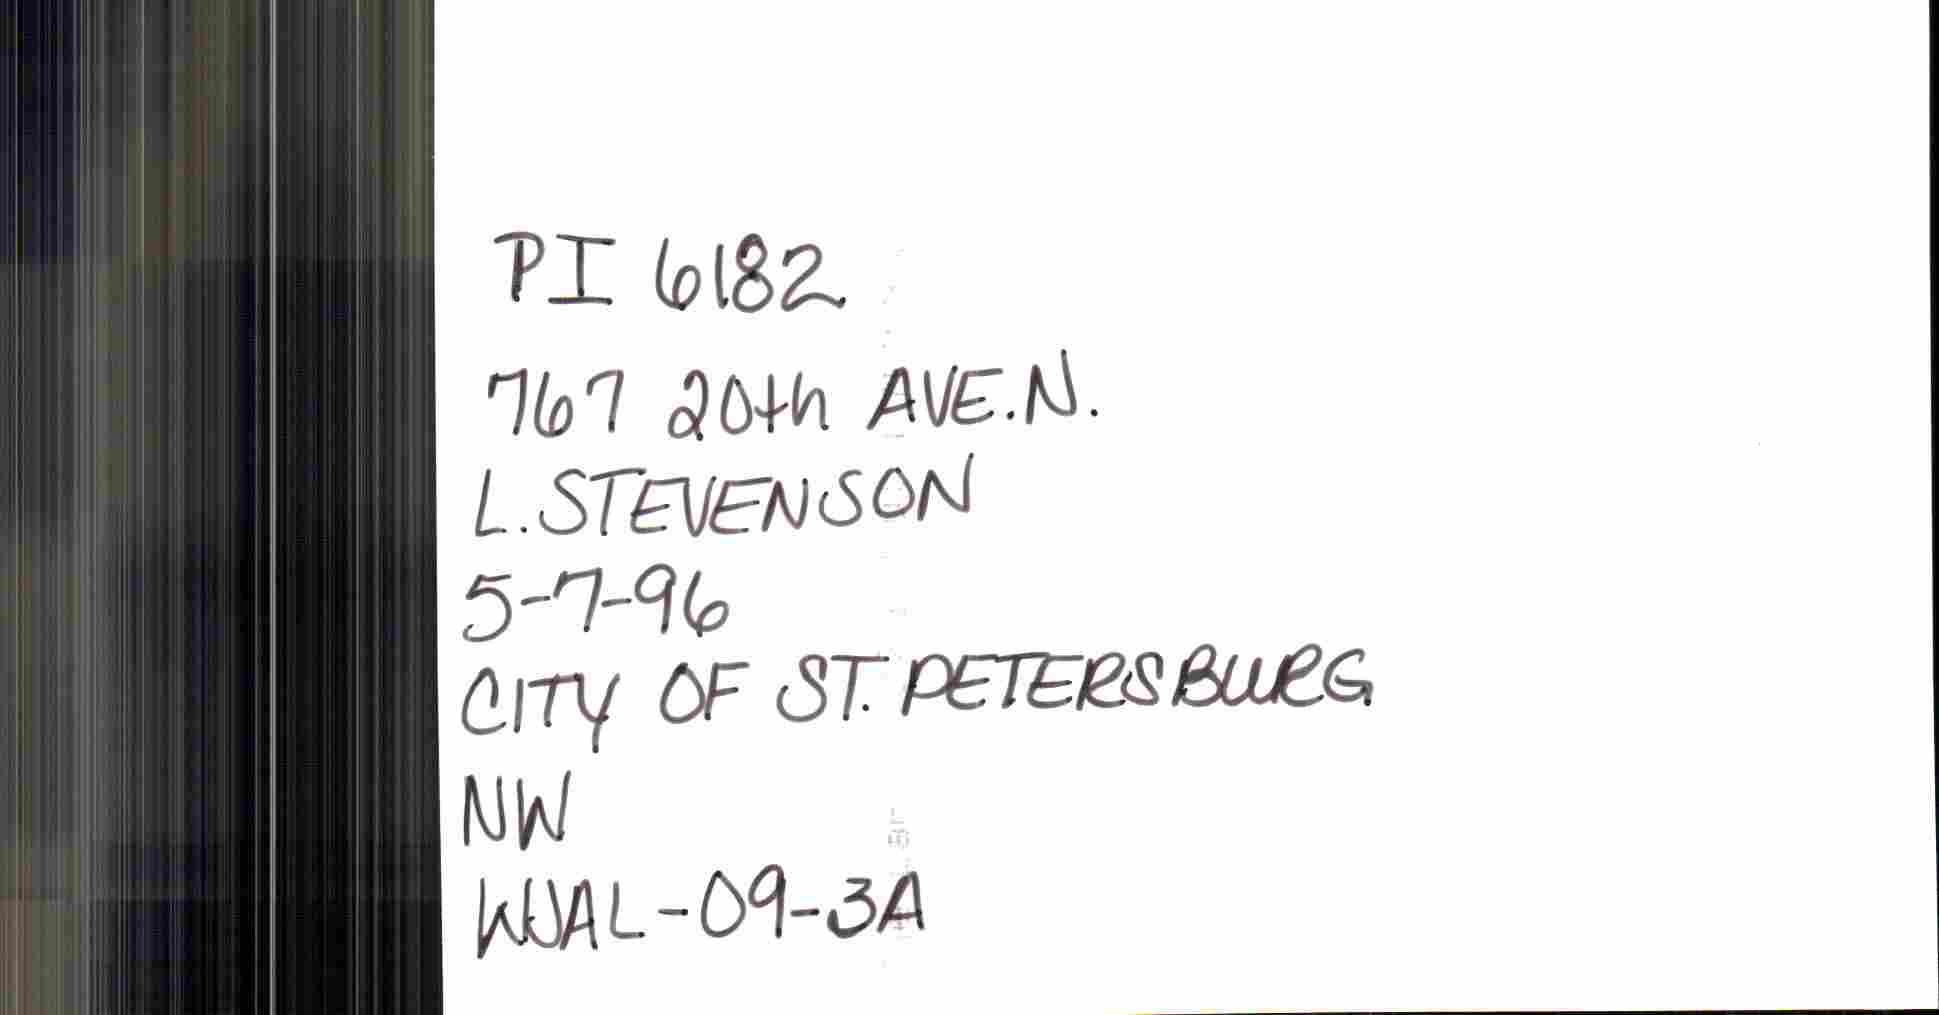 PI 6182
767 20th AVE.N.
L. STEVENSON
5-7-96
CITY OF ST. PETERSBURG
NW
WJAL-09-3A